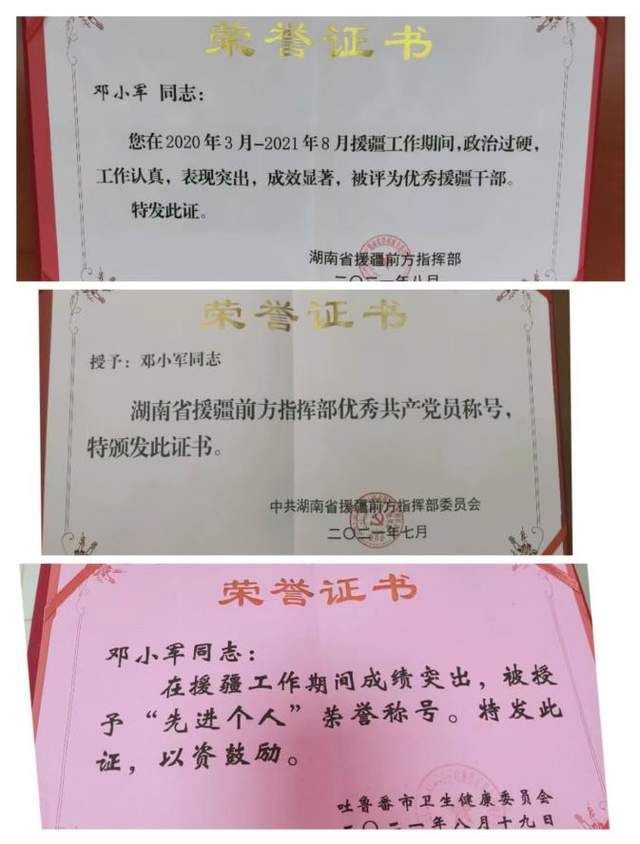 荣誉证书
邓小军 同志：
您在2020年3月-2021年8月援疆工作期间，政治过硬，
工作认真，表现突出，成效显著，被评为优秀援疆干部。
特发此证。
湖南省援疆前方指挥部
二〇二一年八月
荣誉证书
授予：邓小军同志
湖南省援疆前方指挥部优秀共产党员称号，
特颁发此证书。
中共湖南省援疆前方指挥部委员会
二〇二一年七月
荣誉证书
邓小军同志：
在援疆工作期间成绩突出，被授
予“先进个人”荣誉称号。特发此
证，以资鼓励。
吐鲁番市卫生健康委员会
二〇二一年八月十九日